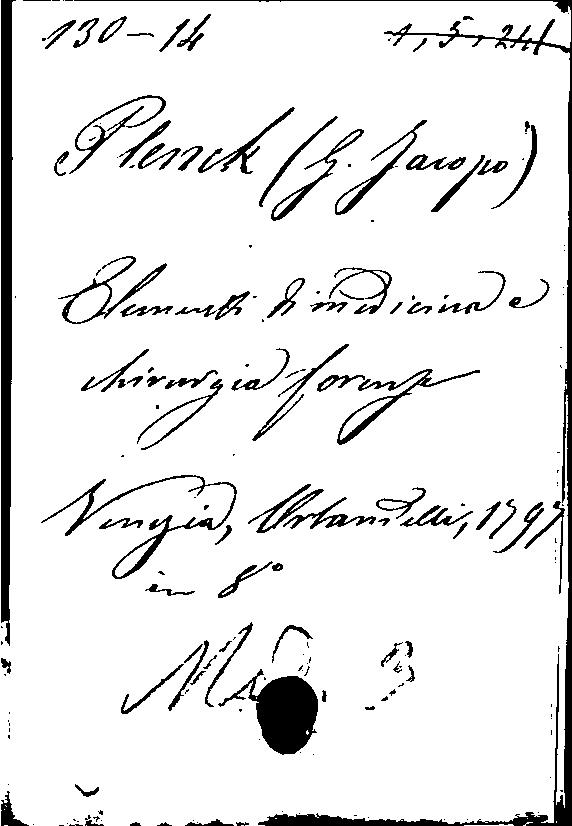 130-14 1,5,241
Plenck (G. Jacopo)
Elementi di medicina e
chirurgia forense
Venezia, Orlandelli, 1797
in 8°
Med. 3